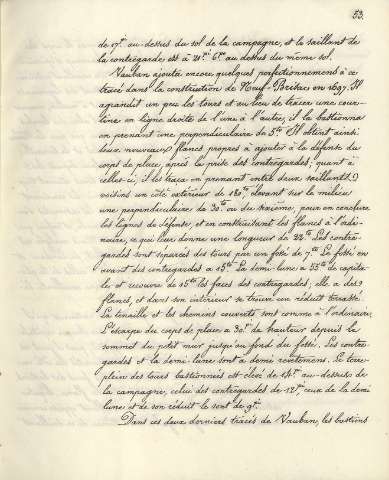 53.
de 17p. au-dessus du sol de la campagne, et le saillant de
la contregarde est à 21p. 6p. au dessus du même sol.
Vauban ajouta encore quelques perfectionnements à ce
tracé dans la construction de Neuf-Brisac en 1697. Il
agrandit un peu les tours et au lieu de tracer une cour-
tine en ligne droite de l'une à l'autre, il la bastionna
en prenant une perpendiculaire de 5to Il obtint ainsi
deux nouveaux flancs propres à ajouter à la défense du
corps de place, après la prise des contregardes; quant à
celles-ci, il les traça en prenant entre deux saillants
voisins un côté extérieur de 180to élevant sur le milieu
une perpendiculaire de 30to ou du sixième, pour en conclure
les lignes de défense, et en construisant les flancs à l'ordi-
naire, ce qui leur donne une longueur de 22to Les contre-
gardes sont séparées des tours par un fossé de 7to Le fossé en
avant des contregardes a 15to La demi-lune a 55to de capita-
le et recouvre de 15to les faces des contregardes; elle a des
flancs, et dans son intérieur se trouve un réduit terrassé.
La tenaille et les chemins couverts sont comme à l'ordinaire.
L'escarpe du corps de place a 30p. de hauteur depuis le
sommet du petit mur jusqu'au fond du fossé. Les contre-
gardes et la demi-lune sont à demi revêtement. Le terre-
plein des tours bastionnées est élevé de 14p. au-dessus de
la campagne, celui des contregardes de 12p, ceux de la demi
lune et de son réduit le sont de 9p.
Dans ces deux derniers tracés de Vauban, les bastions